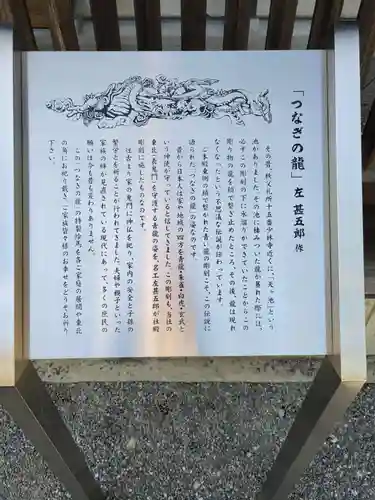 「つなぎの龍」左 甚五郎 作
その昔、秩父札所十五番少林寺近くに、「天ヶ池」という
池がありました。その池に棲みついた龍が暴れた際には、
必ずこの彫刻の下に水溜りができていたことからこの
彫り物の龍を鎖で繋ぎ止めたところ、その後、龍は現れ
なくなったという不思議な伝説が伝わっています。
ご本殿東側の鎖で繋がれた青い龍の彫刻こそ、この伝説に
語られた「つなぎの龍」の姿なのです。
昔から日本人は家や地域の四方を青龍・朱雀・白虎・玄武と
いう神使が守っていると信じてきました。この彫刻も、当社の
東北（表鬼門）を守護する青龍の姿を、名工左甚五郎が社殿
彫刻に施したものなのです。
往古より家の鬼門に神仏を祀り、家内の安全と子孫の
繁栄とを祈ることが行われてきました。夫婦や親子といった
家族の絆が見直されている現代にあって、多くの庶民の
願いは今も昔も変わりありません。
この「つなぎの龍」の特製絵馬を各ご家庭の居間や東北
の角にお祀り戴き、ご家族皆々様のお幸せをどうぞお祈り
下さい。